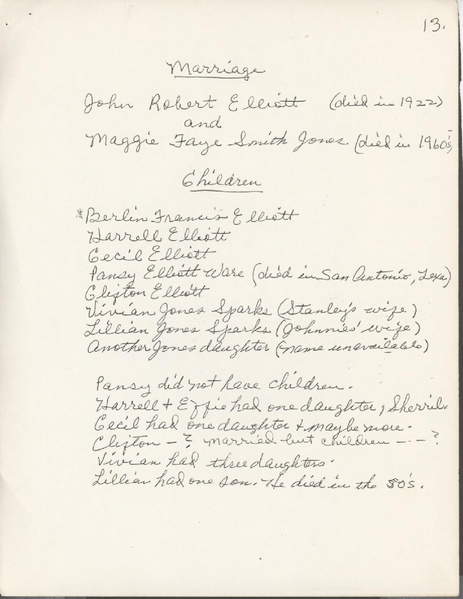 13.
Marriage
John Robert Elliott (died in 1922)
and
Maggie Faye Smith Jones (died in 1960's)
Children
*Berlin Francis Elliott
Harrell Elliott
Cecil Elliott
Pansy Elliott Ware (died in San Antonio, Texas)
Clifton Elliott
Vivian Jones Sparks (Stanley's wife)
Lillian Jones Sparks (Johnnies' wife)
Another Jones daughter (name unavailable)
Pansy did not have children.
Harrell & Effie had one daughter, Sherril.
Cecil had one daughter & maybe more.
Clifton - ? married but children - - ?
Vivian had three daughters.
Lillian had one son. He died in the 80's.